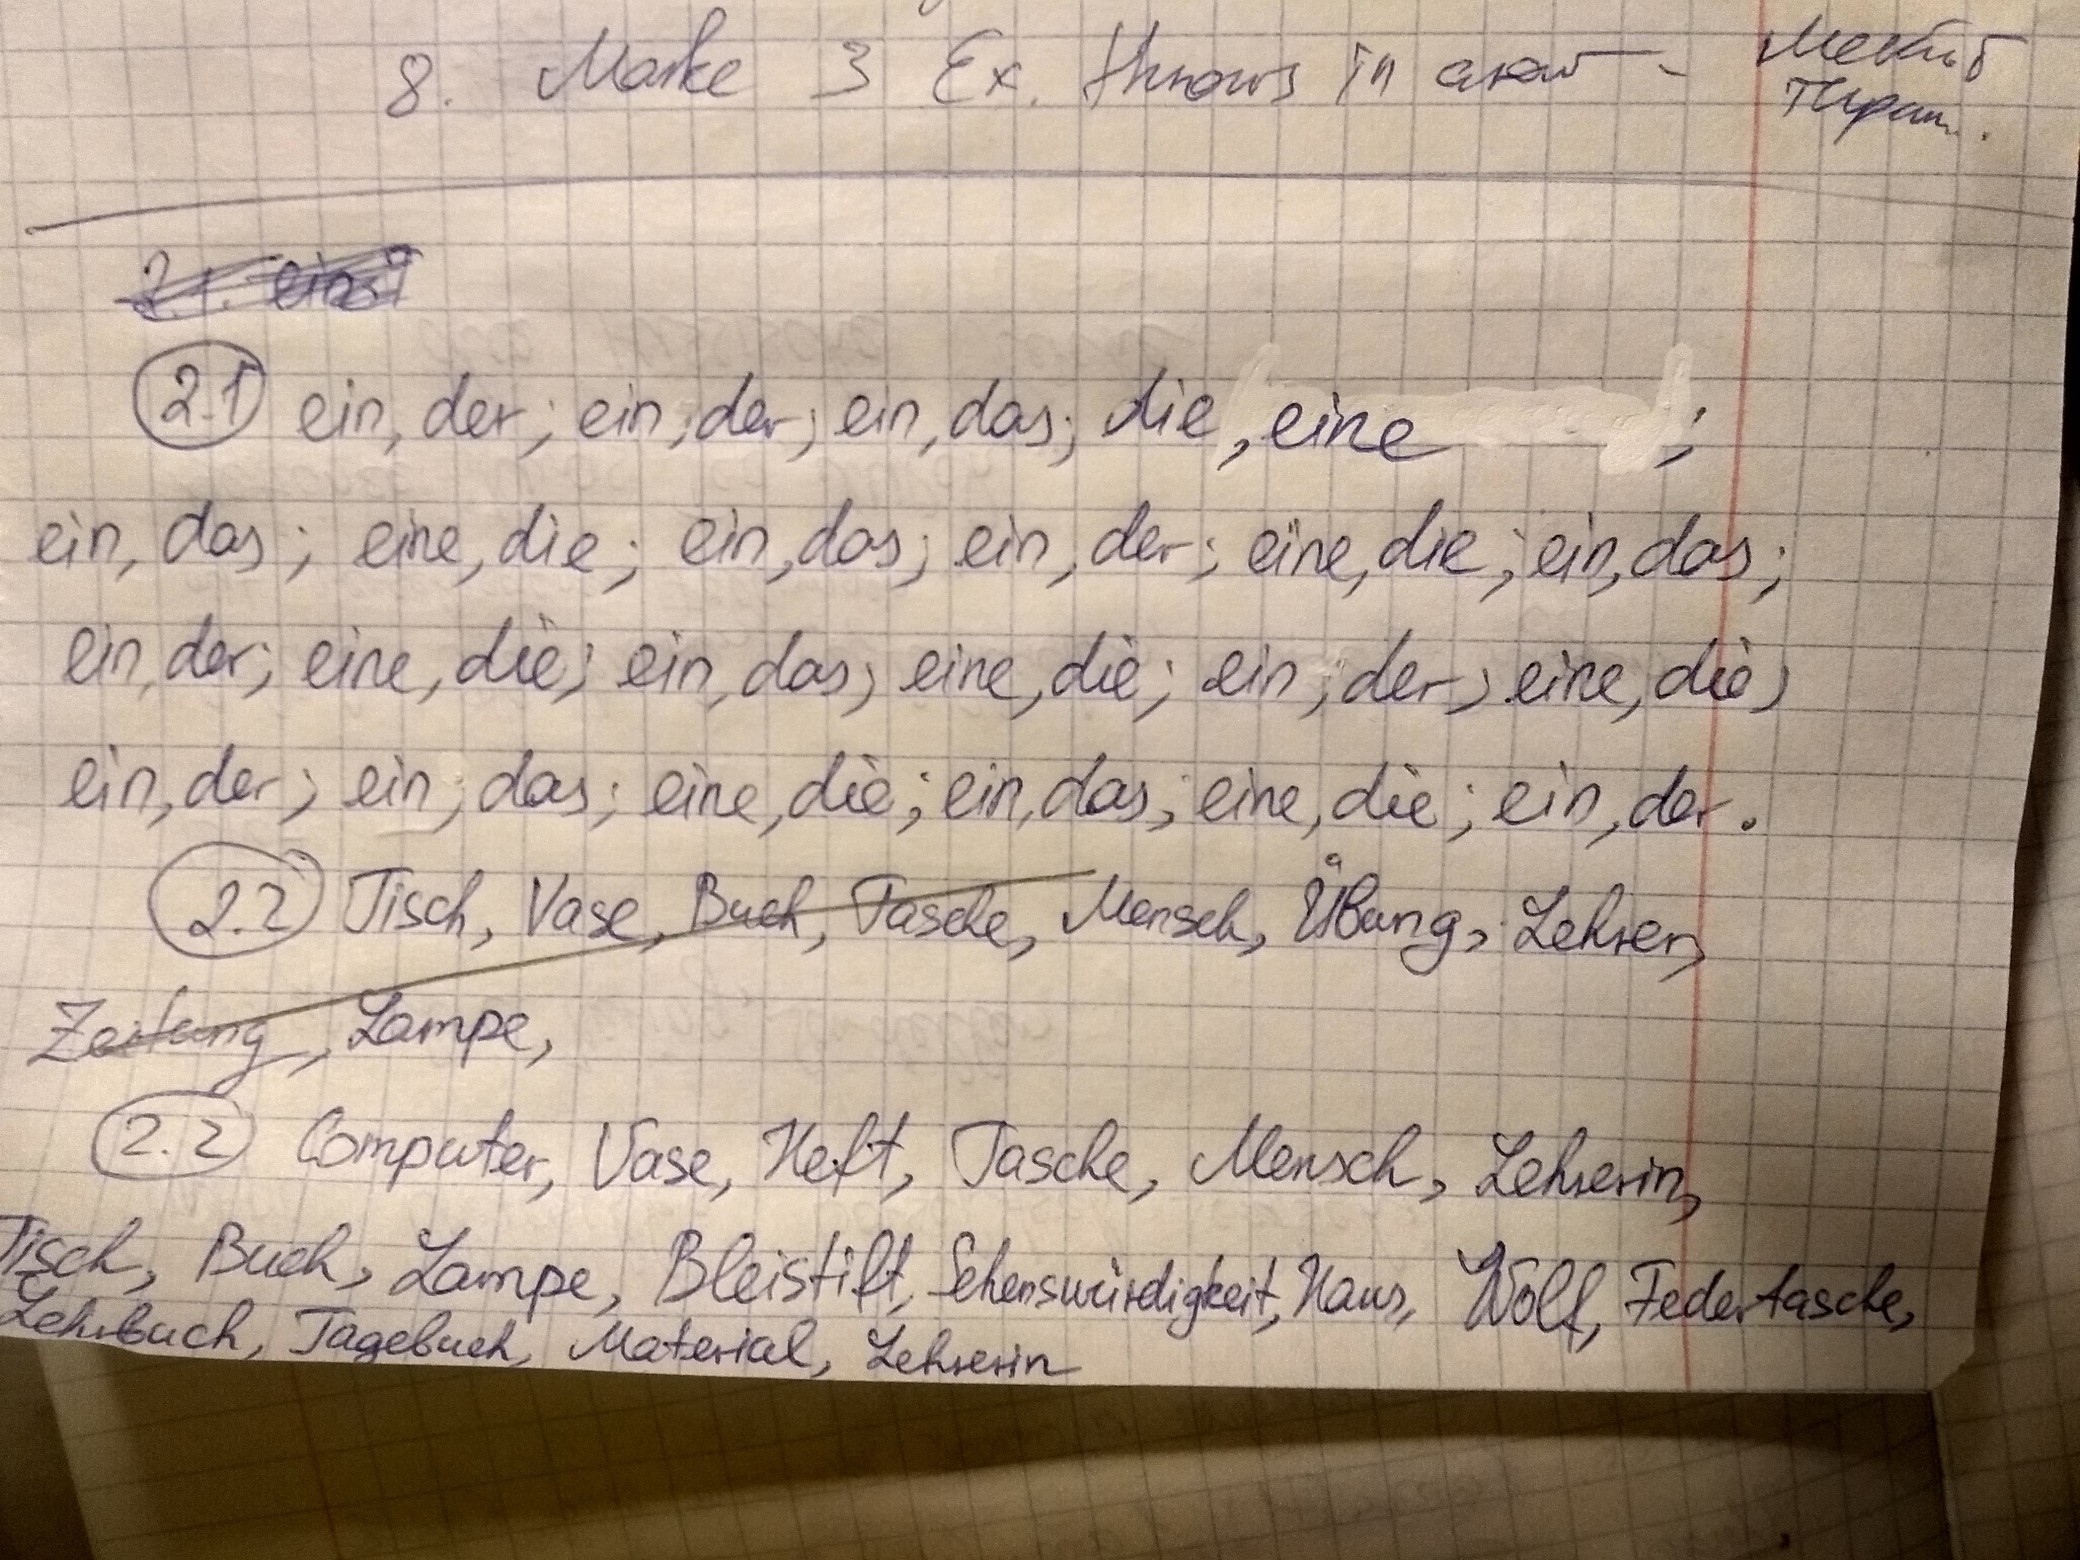 8. Marke 3 Ex. throws in
2.1 ein, der; ein, der; ein, das; die, eine ;
ein, das; eine, die; ein, das; ein, der; eine, die; ein, das;
ein, der; eine, die; ein, das; eine, die; ein, der; eine, die;
ein, der; ein, das; eine, die; ein, das; eine, die; ein, der.
2.2 Tisch, Vase, Buch, Tasche, Mensch, Übung, Lehrer,
Zeitung, Lampe,
2.2 Computer, Vase, Heft, Tasche, Mensch, Lehrerin,
Tisch, Buch, Lampe, Bleistift, Sehenswürdigkeit, Haus, Wolf, Federtasche,
Lehrbuch, Tagebuch, Material, Lehrerin